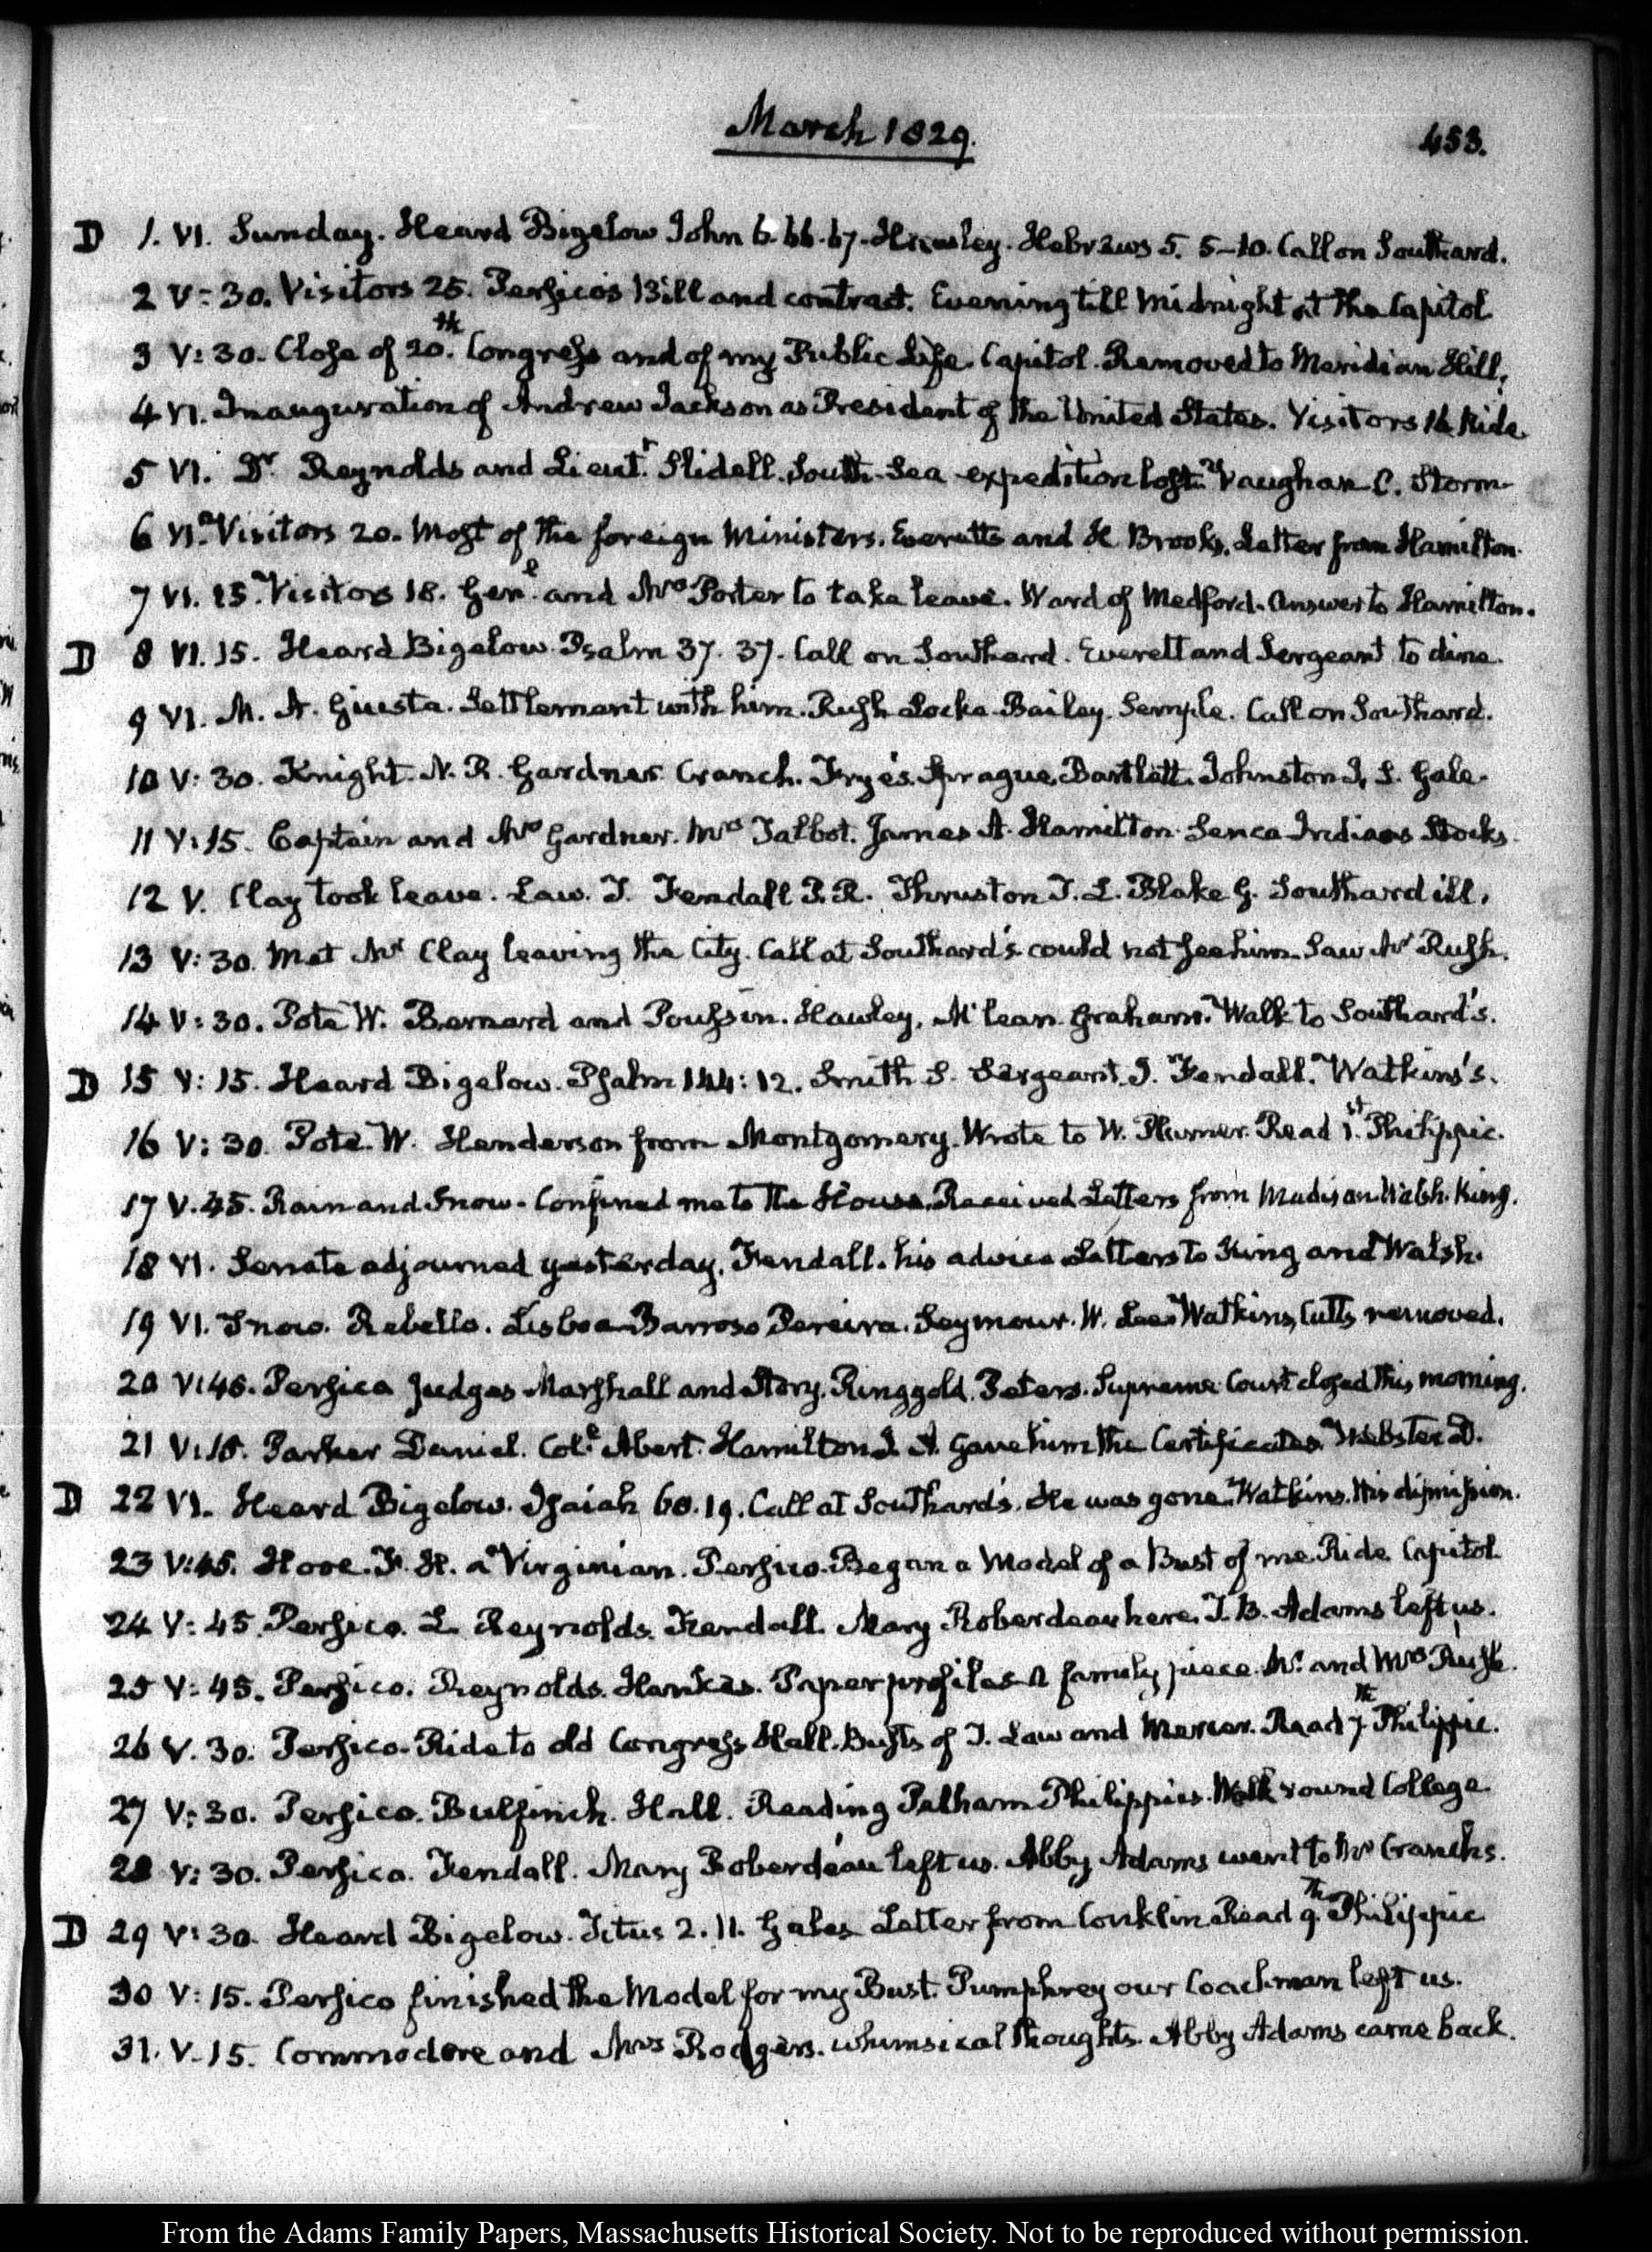 March 1829.
453.
D 1. VI. Sunday. Heard Bigelow John 6. 66. 67. Hawley. Hebrews 5. 5-10. Call on Southard.
2 V: 30. Visitors 25. Persico's Bill and contract. Evening till Midnight at the Capitol
3 V: 30. Close of 20.th Congress and of my Public Life. Capitol. Removed to Meridian Hill.
4 VI. Inauguration of Andrew Jackson as President of the United States. Visitors 16 Ride
5 VI. Dr Reynolds and Lieut.t Slidell. South-Sea expedition lost. Vaughan C. Storm
6 VI. Visitors 20. Most of the foreign Ministers. Everetts and Brooks. Letter from Hamilton.
7 VI. 15. Visitors 18. Gen.l and Mrs Porter to take leave. Ward of Medford. Answer to Hamilton.
D 8 VI. 15. Heard Bigelow. Psalm 37. 37. Call on Southard. Everett and Sergeant to dine.
9 VI. M. A. Giusta. Settlement with him. Rush Locke. Bailey. Semple. Call on Southard.
10 V: 30. Knight. N. R. Gardner Cranch. Frye's. Sprague, Bartlett. Johnston J. S. Gale
11 V: 15. Captain and Mrs Gardner. Mrs Talbot. James A. Hamilton Senca Indians Stocks
12 V. Clay took leave. Law. T. Fendall P. R. Thruston T. L. Blake G. Southard ill.
13 V: 30. Met Mr Clay leaving the City. Call at Southard's. could not see him. Saw Mr Rush.
14 V: 30. Pote W. Bernard and Poussin. Hawley, McLean. Graham. Walk to Southard's.
D 15 V: 15. Heard Bigelow. Psalm 144: 12. Smith S. Sergeant. J. Fendall. Watkins's.
16 V: 30. Pote. W. Henderson from Montgomery. Wrote to W. Plumer. Read 1.st Philippic.
17 V. 45. Rain and Snow. Confined me to the House. Received Letters from Madison. Walsh. King.
18 VI. Senate adjourned yesterday. Fendall. his advice Letters to King and Walsh.
19 VI. Snow. Rebello. Lisboa Barroso Pereira. Seymour. W. Lee Watkins, Cutts removed.
20 V: 45. Persico Judges Marshall and Story. Ringgold. Peters. Supreme Court closed this morning.
21 V: 15. Parker Daniel. Col.l Abert. Hamilton J. A. Gave him the Certificates. Webster D.
D 22 VI. Heard Bigelow. Isaiah 60. 19. Call at Southard's. He was gone. Watkins. His dismission.
23 V: 45. F. H. a Virginian. Persico. Began a Model of a Bust of me. Ride Capitol
24 V: 45. Persico. L. Reynolds. Fendall. Mary Roberdeau here. T. B. Adams left us.
25 V: 45. Persico. Reynolds. Hankes. Paper profiles A family piece. Mr. and Mrs Rush.
26 V. 30. Persico. Ride to old Congress Hall. Busts of T. Law and Mercer. Read 7.th Philippic.
27 V: 30. Persico. Bulfinch. Hall. Reading Pelham Philippics. Walk round College
28 V: 30. Persico. Fendall. Mary Roberdeau left us. Abby Adams went to Mr Cranch's.
D 29 V: 30. Heard Bigelow. Titus 2. 11. Gales Letter from Conklin. Read 9.th Philippic
30 V: 15. Persico finished the Model for my Bust. Pumphrey our Coachman left us.
31. V. 15. Commodore and Mrs Rodgers. whimsical thoughts. Abby Adams came back.
From the Adams Family Papers, Massachusetts Historical Society. Not to be reproduced without permission.